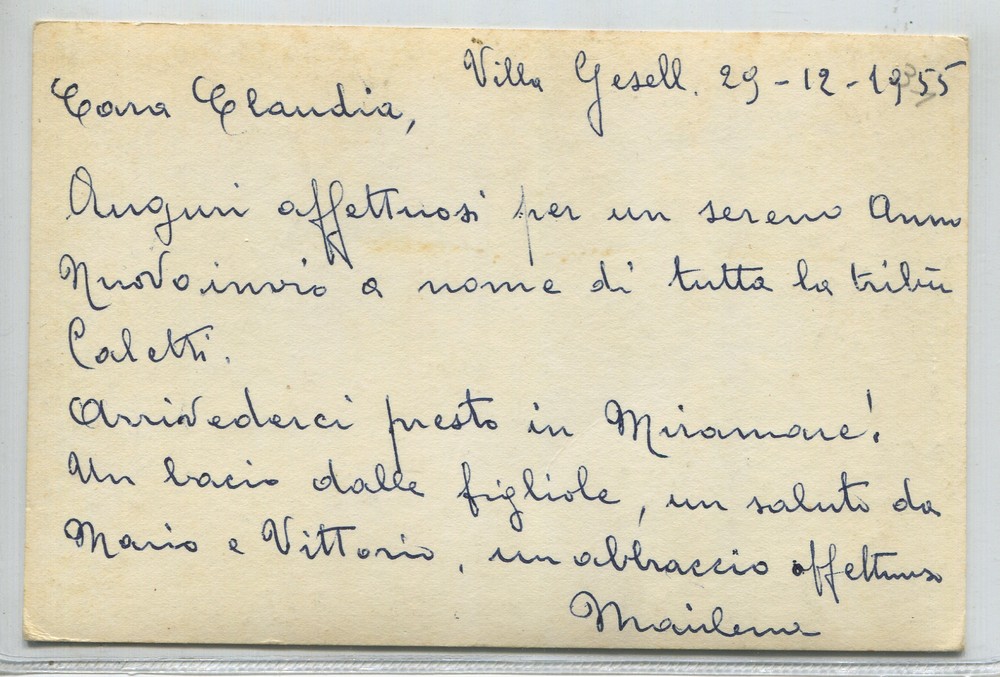 Villa Gesell. 29-12-1955
Cara Claudia,
Auguri affettuosi per un sereno Anno
Nuovo invio a nome di tutta la tribù
Caletti.
Arrivederci presto in Miramare!
Un bacio dalle figliole, un saluto da
Mario e Vittorio, un abbraccio affettuoso